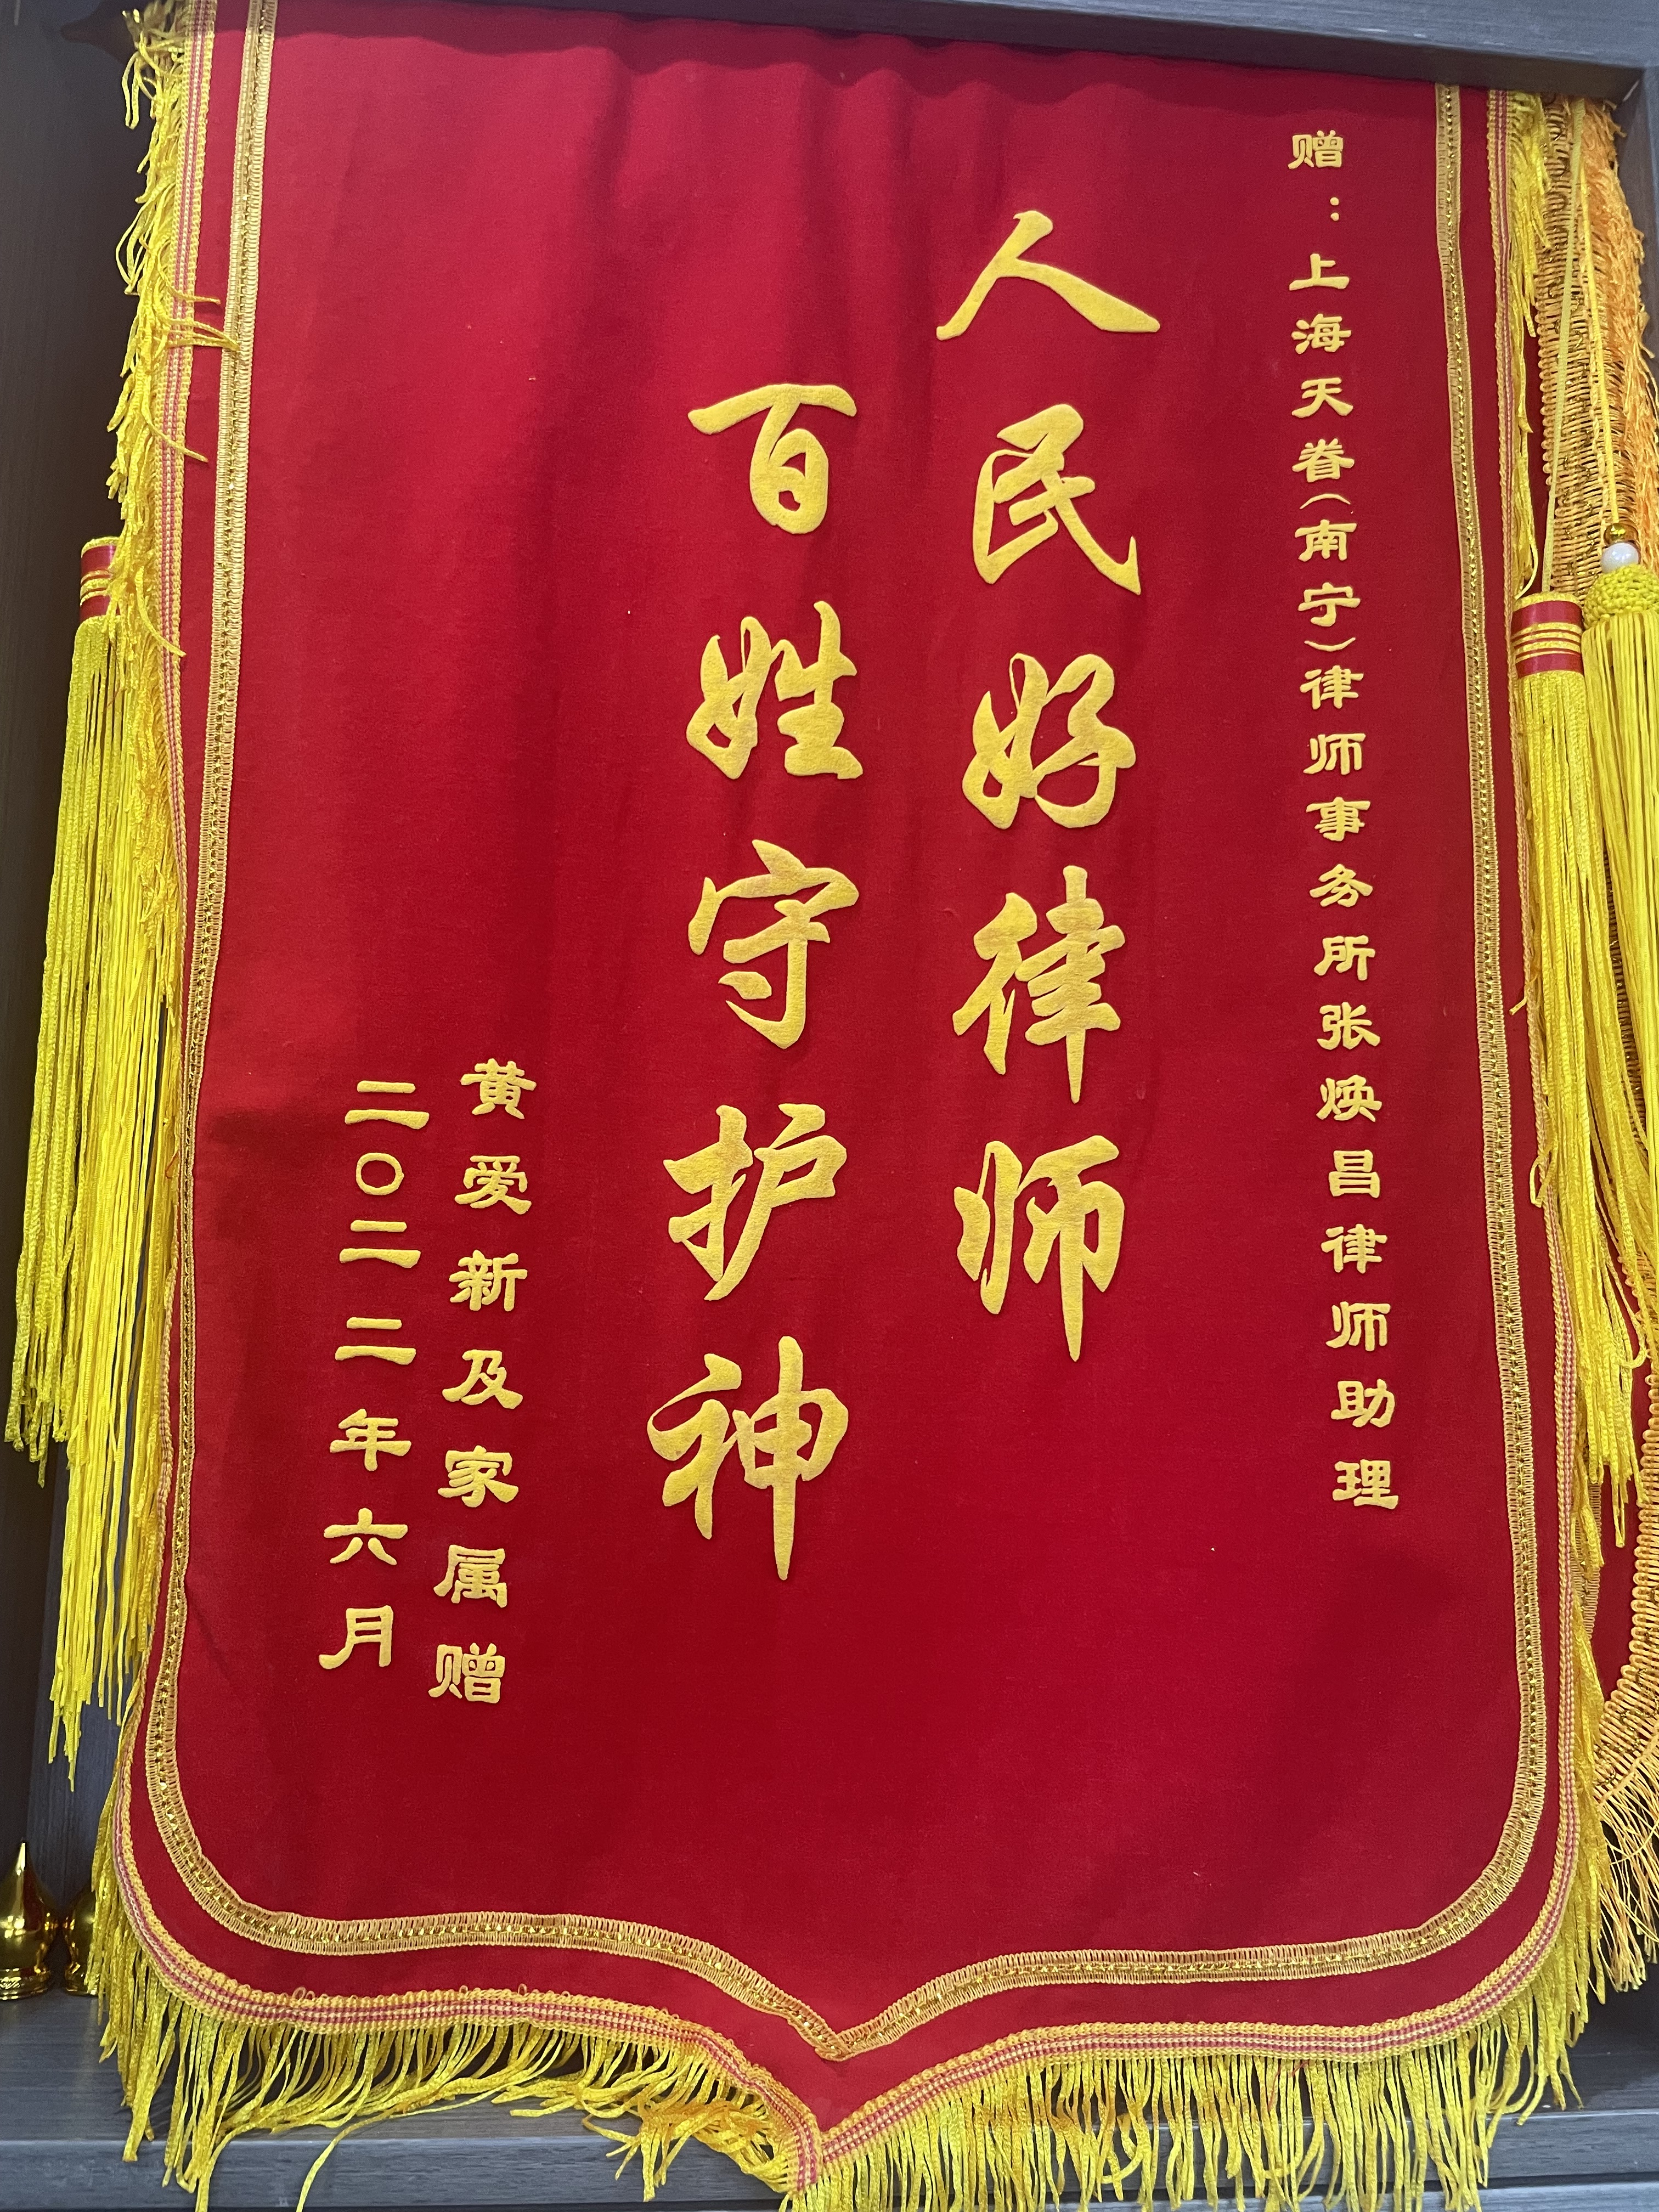 赠:上海天眷(南宁)律师事务所张焕昌律师助理
人民好律师
百姓守护神
黄爱新及家属赠
二〇二二年六月